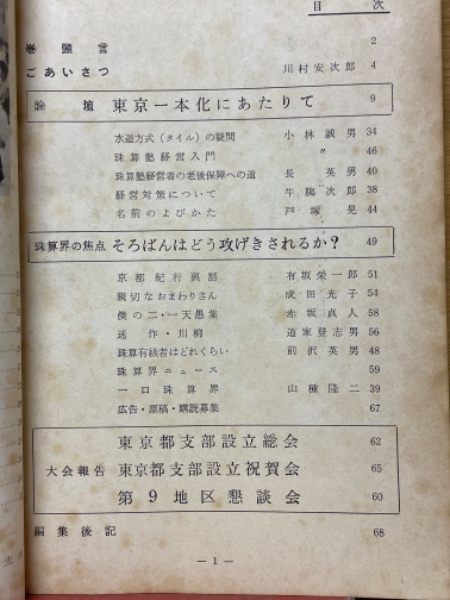 目 次
巻頭言 2
ごあいさつ 川村安次郎 4
論壇 東京一本化にあたりて 9
水道方式(タイル)の疑問 小林誠男 34
珠算塾経営入門 〃 46
珠算塾経営者の老後保障への道 長英男 40
経営対策について 牛腸次郎 38
名前のよびかた 戸塚晃 44
珠算界の焦点 そろばんはどう攻げきされるか? 49
京都紀行裏話 有坂栄一郎 51
親切なおまわりさん 成田光子 54
僕の二・一天愚集 赤坂貞人 58
迷作・川柳 道家登志男 56
珠算有級者はどれくらい 前沢英男 48
珠算界ニュース 59
一口珠算界 山種隆二 39
広告・原稿・購読募集 67
東京都支部設立総会 62
大会報告 東京都支部設立祝賀会 65
第9地区懇談会 60
編集後記 68
— 1 —